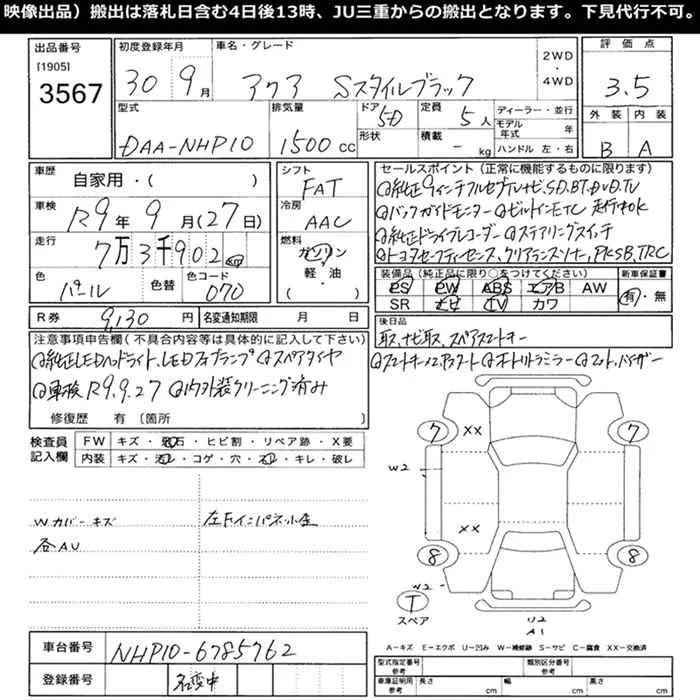 映像出品）搬出は落札日含む4日後13時、JU三重からの搬出となります。下見代行不可。
出品番号
[1905]
3567
初度登録年月
30 9月
車名・グレード
アクア Sスタイルブラック
2WD
・
4WD
評価点
3.5
外装 内装
B A
型式
DAA-NHP10
排気量
1500cc
ドア 5D
形状
定員 5人
積載 - kg
ディーラー・並行
モデル年式 年
ハンドル 左・右
車歴
自家用・( )
車検
R9年9月(27日)
走行
7万3千902km
色
パール
色替
色コード
070
シフト
FAT
冷房
AAC
燃料
ガソリン
軽・油
( )
セールスポイント（正常に機能するものに限ります）
純正9インチフルセグTVナビ、SD.BT.DVD.TV
バックガイドモニター ビルトインETC 走行中OK
純正ドライブレコーダー ステアリングスイッチ
トヨタセーフティセンス、クリアランスソナー、PKSB,TRC
装備品（純正品に限り○をつけてください）
PS PW ABS エアB AW
SR ナビ TV カワ
新車保証書
有・無
R券 9,130円
名変通知期限 月 日
後日品
取、ナビ取、スペアスマートキー
注意事項申告欄(不具合内容等は具体的に記入して下さい)
純正LEDヘッドライト、LEDフォグランプ スペアタイヤ
車検R9.9.27 内外装クリーニング済み
修復歴 有 〔箇所 〕
スマートキー×2、プッシュスタート オートリトラミラー マット、バイザー
検査員記入欄
FW キズ・飛石・ヒビ割・リペア跡・X要
内装 キズ・汚レ・コゲ・穴・スレ・キレ・破レ
Wカバーキズ
各AU
左下インパネ小キズ
7 XX 7
W2
XX
8 8
W2
T
スペア
U2
A1
A－キズ E－エクボ U－凹み W－補修跡 S－サビ C－腐食 XX－交換済
車台番号
NHP10-6785762
登録番号
名変中
型式指定番号 参考
類別区分番号 参考
車庫証明用 参考 長さ cm 幅 cm 高さ cm